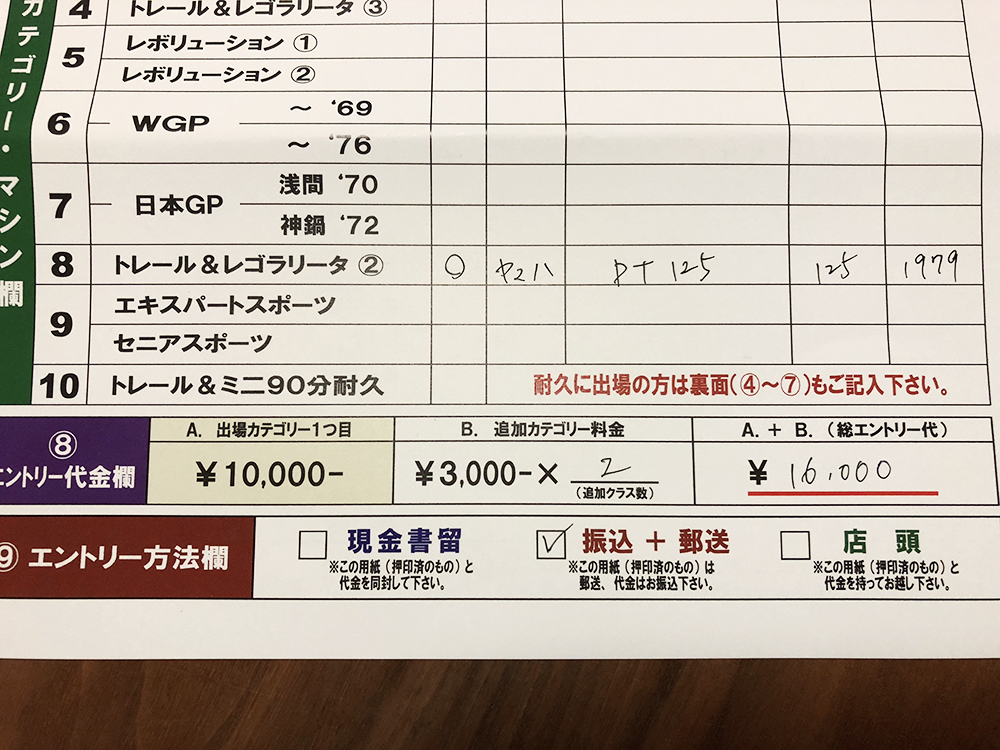 カテゴリー・マシン欄
4 トレール＆レゴラリータ ③
5 レボリューション ①
レボリューション ②
6 WGP ～ ‘69
～ ‘76
7 日本GP 浅間 ‘70
神鍋 ‘72
8 トレール＆レゴラリータ ② ○ ヤマハ DT 125 125 1979
9 エキスパートスポーツ
セニアスポーツ
10 トレール＆ミニ90分耐久 耐久に出場の方は裏面(④～⑦)もご記入下さい。
⑧ エントリー代金欄
A. 出場カテゴリー1つ目
￥10,000-
B. 追加カテゴリー料金
￥3,000-× 2
(追加クラス数)
A. + B. (総エントリー代)
￥ 16,000
⑨ エントリー方法欄
現金書留
※この用紙（押印済のもの）と
代金を同封して下さい。
✓ 振込 + 郵送
※この用紙（押印済のもの）は
郵送、代金はお振込下さい。
店 頭
※この用紙（押印済のもの）と
代金を持ってお越し下さい。